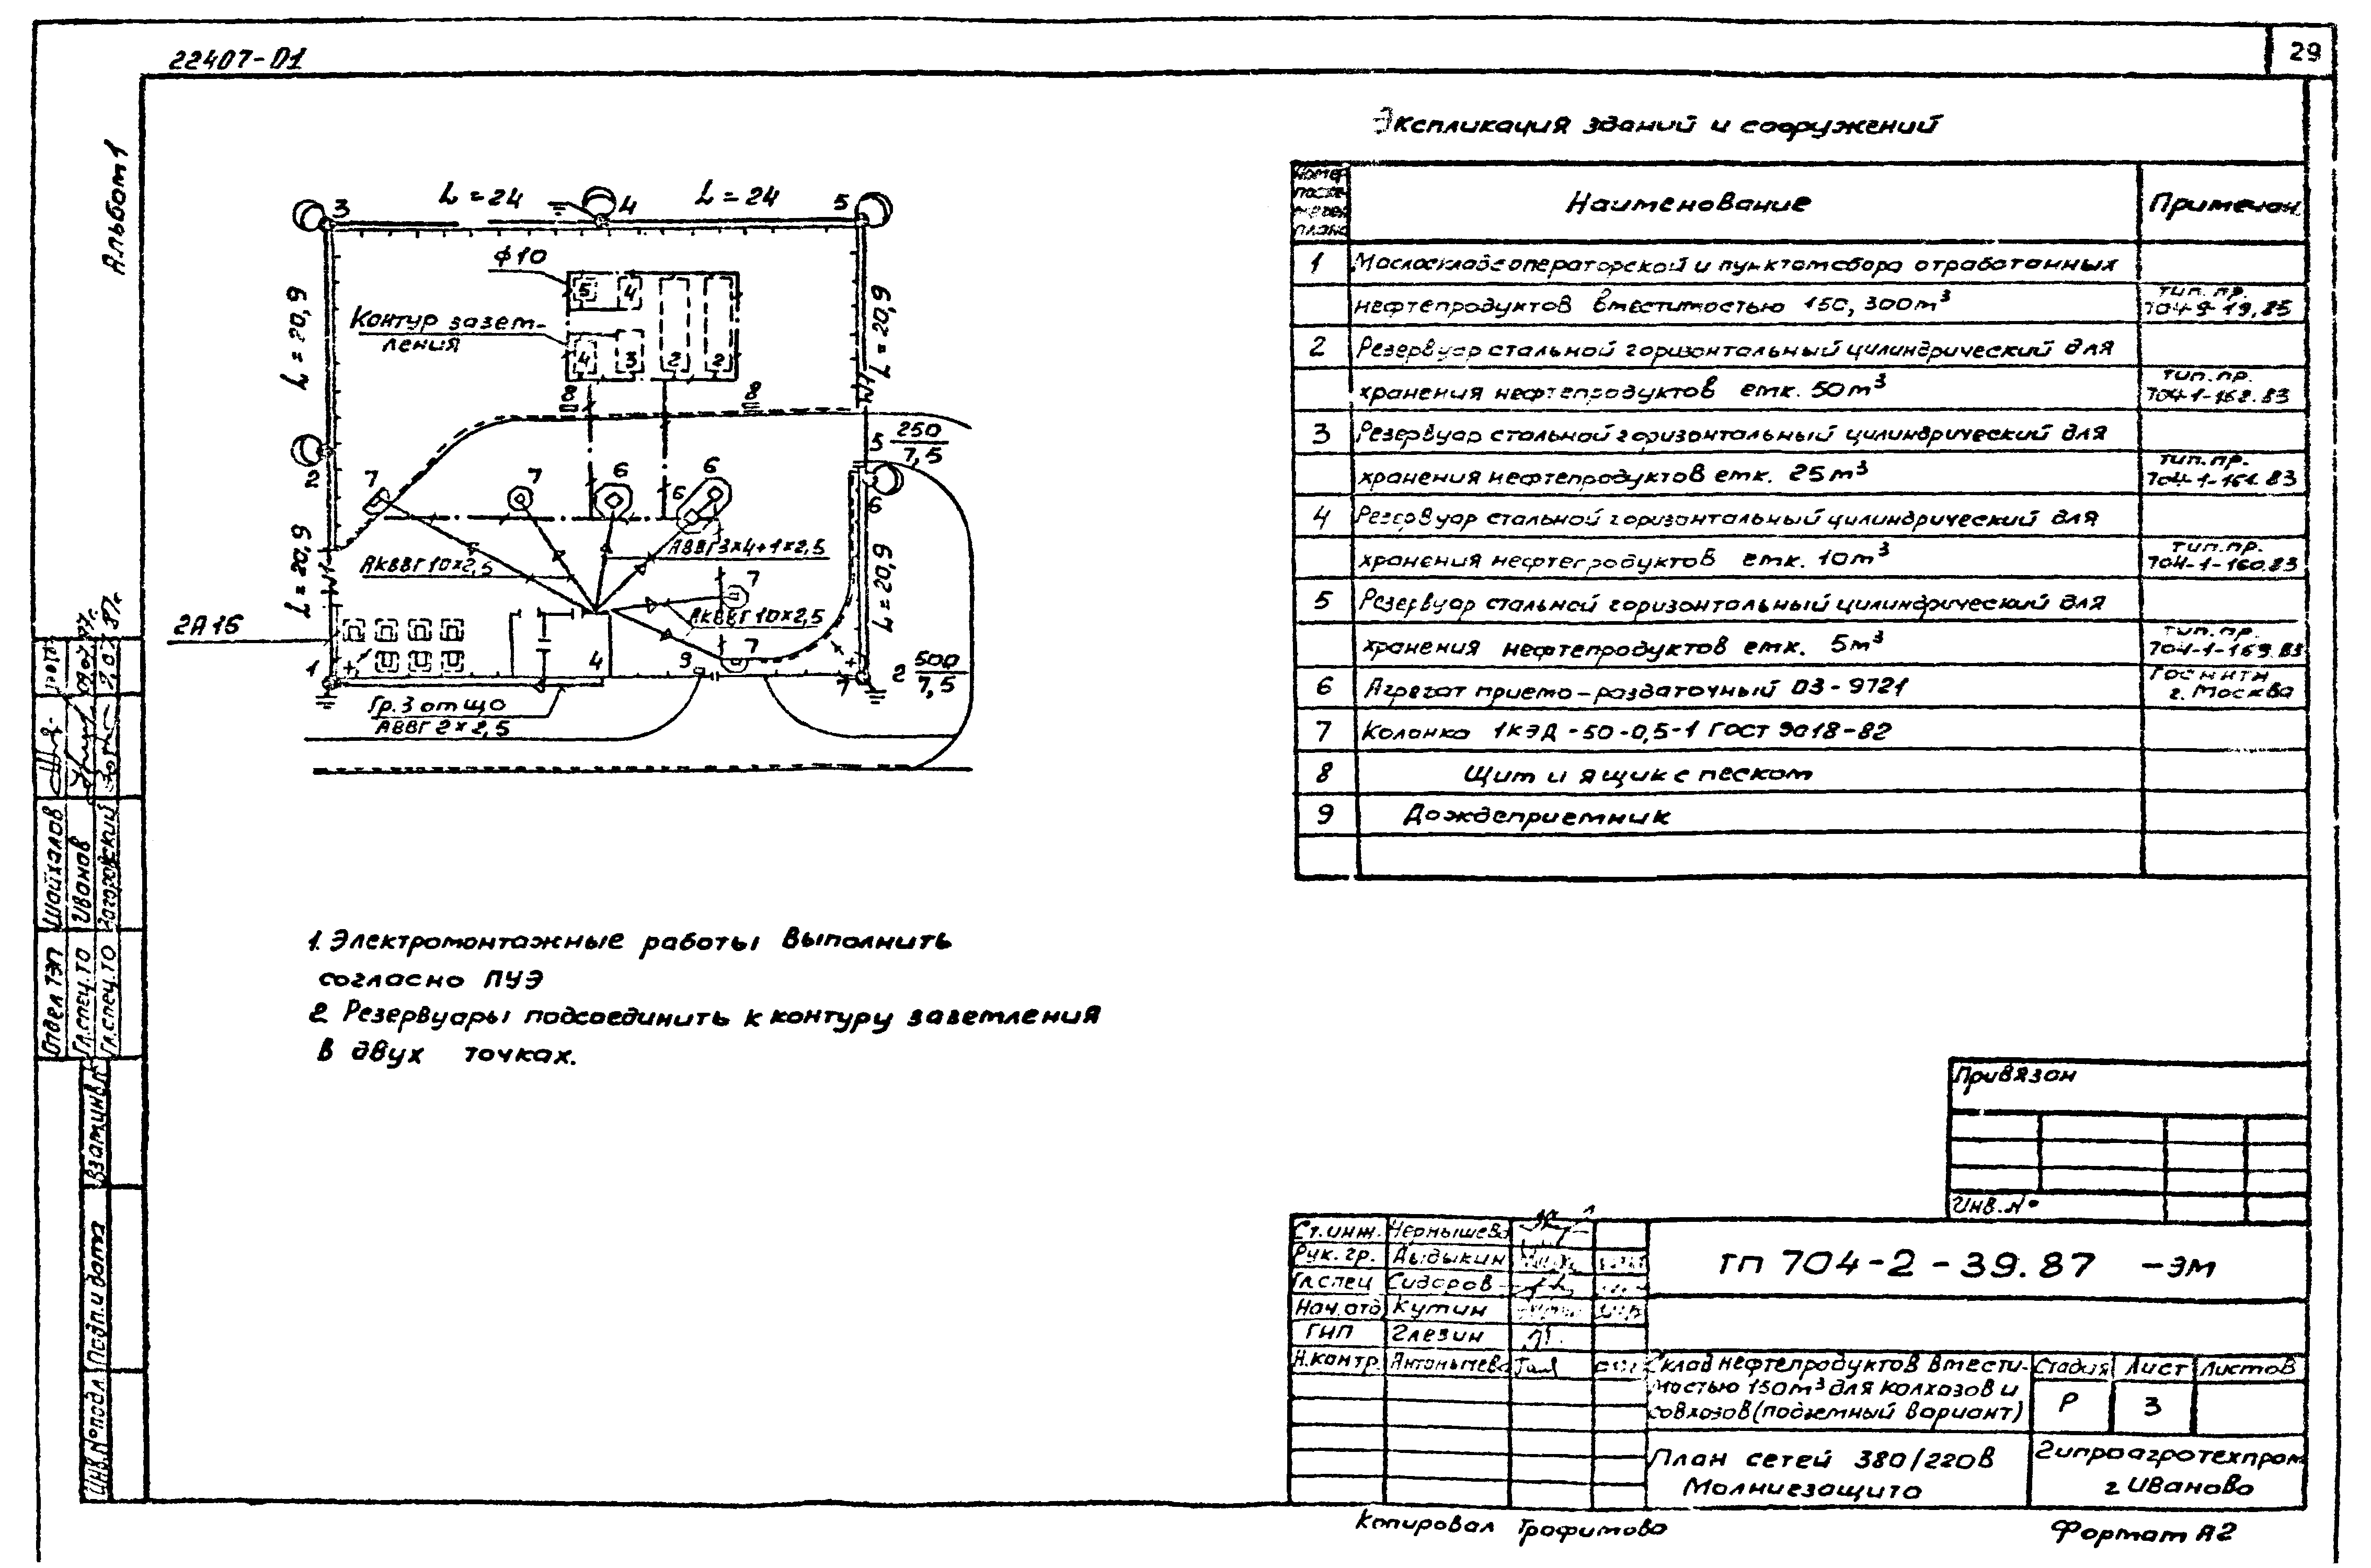 22407-01
29
Альбом 1
L = 24
L = 24
3
4
5
ф10
Контур зазем-
ления
L = 20,9
L = 20,9
5
4
4
3
2
2
8
8
5 250
7,5
2
7
7
6
6
6
6
АВВГ3×4+1×2,5
АКВВГ 10×2,5
7
АКВВГ 10×2,5
L = 20,9
L = 20,9
2А16
1
4
9
7
7
2 500
7,5
Гр.3 от ЩО
АВВГ 2×2,5
1. Электромонтажные работы выполнить
согласно ПУЭ
2 Резервуары подсоединить к контуру заземления
в двух точках.
Экспликация зданий и сооружений
Номер
по ген
плана
Наименование
Примечан.
1 Маслосклад с операторской и пунктом сбора отработанных
нефтепродуктов вместимостью 150, 300 м³ тип. пр. 704-9-19.85
2 Резервуар стальной горизонтальный цилиндрический для
хранения нефтепродуктов емк. 50 м³ тип. пр. 704-1-162.83
3 Резервуар стальной горизонтальный цилиндрический для
хранения нефтепродуктов емк. 25 м³ тип. пр. 704-1-161.83
4 Резервуар стальной горизонтальный цилиндрический для
хранения нефтепродуктов емк. 10 м³ тип. пр. 704-1-160.83
5 Резервуар стальной горизонтальный цилиндрический для
хранения нефтепродуктов емк. 5 м³ тип. пр. 704-1-169.83
6 Агрегат приемо-раздаточный 03-9721 ГОСНИТИ г. Москва
7 Колонка 1КЭД-50-0,5-1 ГОСТ 9018-82
8 Щит и ящик с песком
9 Дождеприемник
Привязан
Инв. №
Ст. инж. Чернышева
Рук. гр. Дыдыкин
Гл. спец Сидоров
Нач. отд Кутин
ГИП Глезин
Н. контр.
ТП 704-2-39.87 -ЭМ
Склад нефтепродуктов вмести-
мостью 150 м³ для колхозов и
совхозов (подземный вариант)
Стадия Лист Листов
Р 3
План сетей 380/220В
Молниезащита
Гипроагротехпром
г. Иваново
Копировал Трофимова
Формат А2
Отдел ТЭП Шайхалов
Гл. спец. ТО Иванов
Гл. спец. ТО Загородский
Взам. инв. №
Подп. и дата
Инв. № подл.